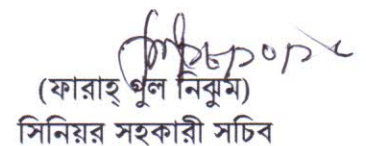 (ফারাহ্ গুল নিঝুম)
সিনিয়র সহকারী সচিব